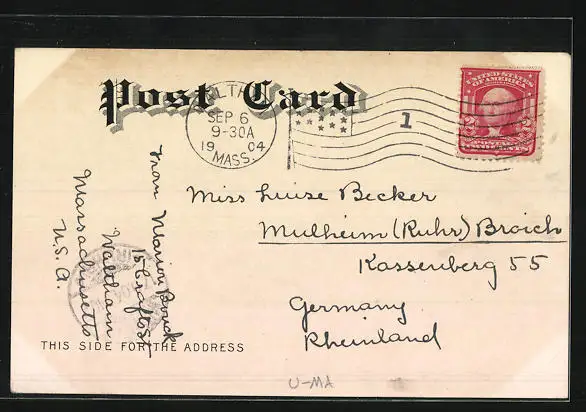 Post Card
WALTHAM
SEP 6
9-30A
19 04
MASS.
1
UNITED STATES
OF AMERICA
2 2
POSTAGE
TWO CENTS
Miss Luise Becker
Mulheim (Ruhr) Broich
Kassenberg 55
Germany
Rheinland
From Marion
15 Crafts St
Waltham
Massachusetts
U.S.A.
THIS SIDE FOR THE ADDRESS
U-MA